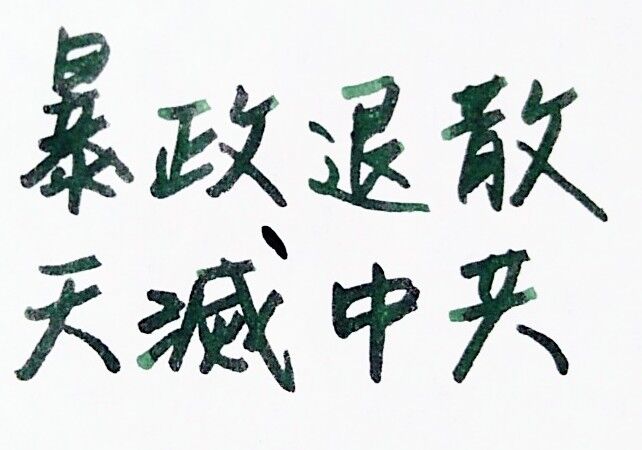 暴政退散
天滅中共